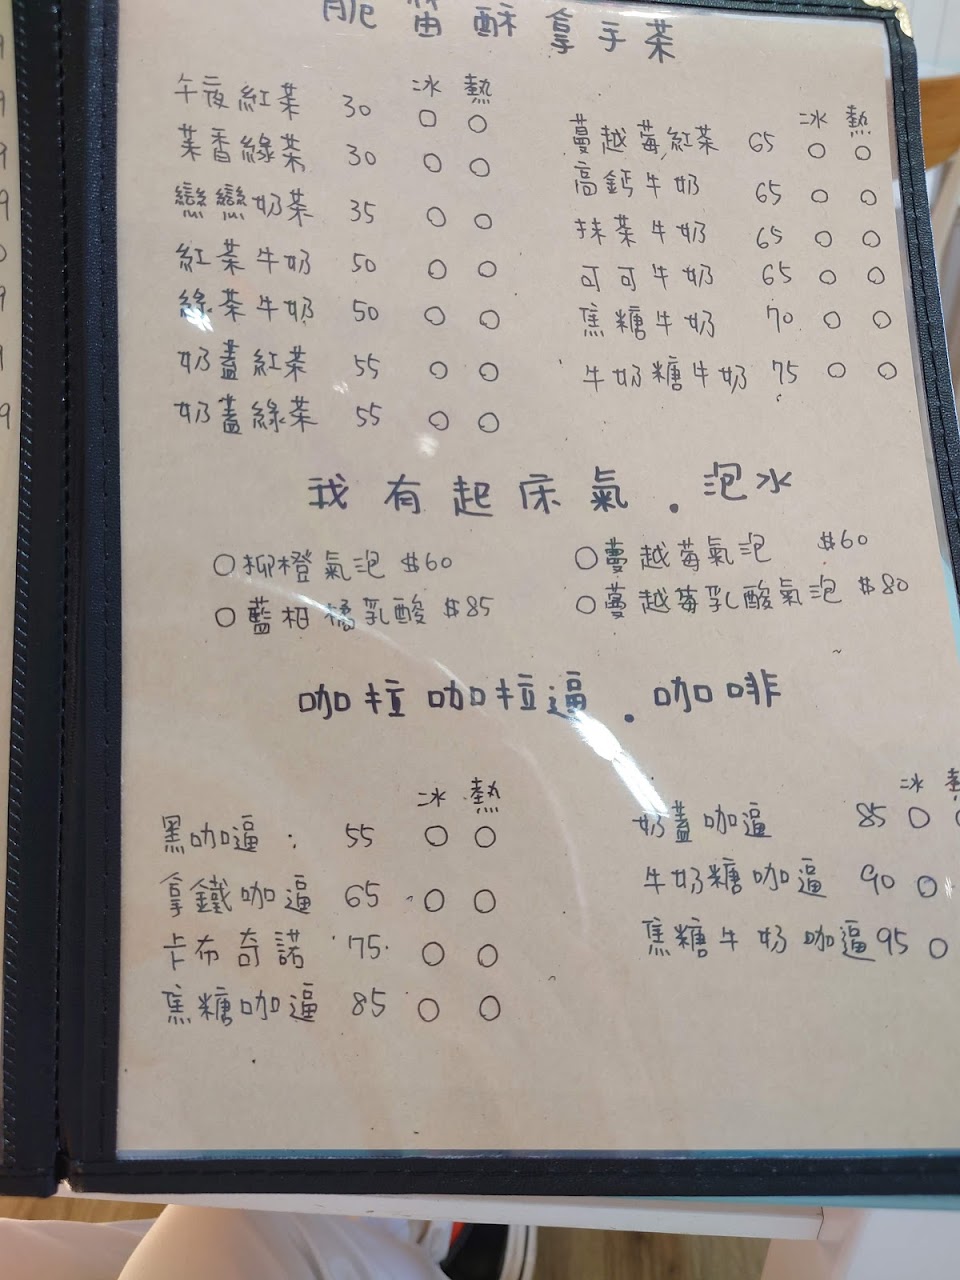 脆笛酥拿手茶
冰 熱
午夜紅茶 30 ○ ○
茉香綠茶 30 ○ ○
戀戀奶茶 35 ○ ○
紅茶牛奶 50 ○ ○
綠茶牛奶 50 ○ ○
奶蓋紅茶 55 ○ ○
奶蓋綠茶 55 ○ ○
冰 熱
蔓越莓紅茶 65 ○ ○
高鈣牛奶 65 ○ ○
抹茶牛奶 65 ○ ○
可可牛奶 65 ○ ○
焦糖牛奶 70 ○ ○
牛奶糖牛奶 75 ○ ○
我有起床氣.泡水
○柳橙氣泡 $60
○藍柑橘乳酸 $85
○蔓越莓氣泡 $60
○蔓越莓乳酸氣泡 $80
咖拉咖拉逼.咖啡
冰 熱
黑咖逼: 55 ○ ○
拿鐵咖逼 65 ○ ○
卡布奇諾 75 ○ ○
焦糖咖逼 85 ○ ○
冰 熱
奶蓋咖逼 85 ○ ○
牛奶糖咖逼 90 ○
焦糖牛奶咖逼 95 ○